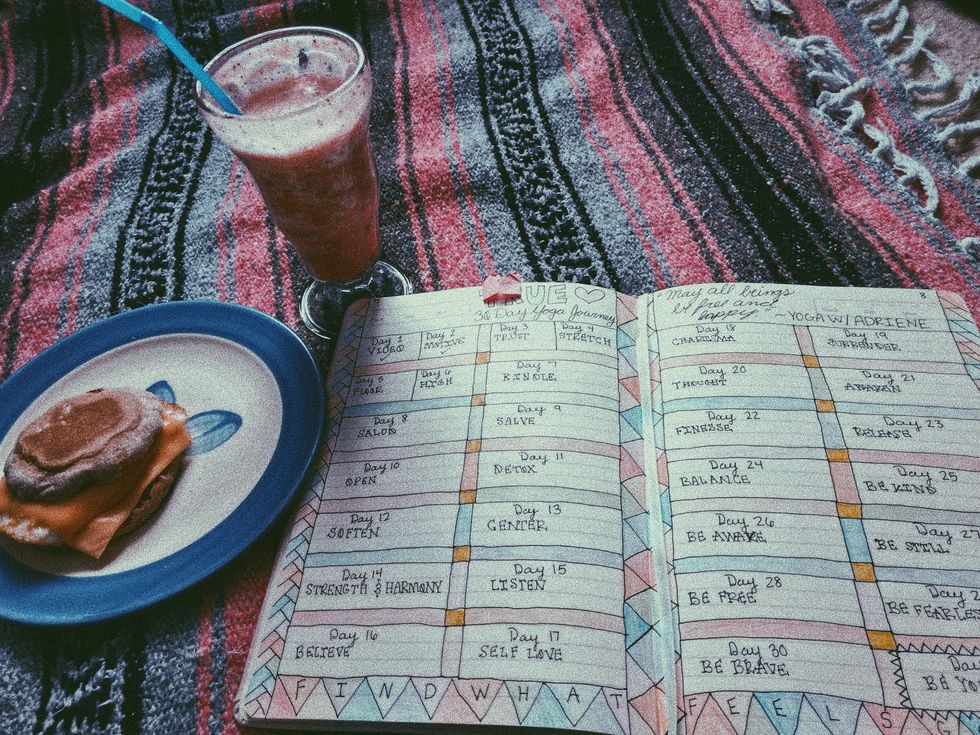 UE ♡
30 Day Yoga Journey
Day 1
VIDEO
Day 2
MOTIVE
Day 3
TRUST
Day 4
STRETCH
Day 5
FLOOR
Day 6
HIGH
Day
KINDLE
Day 8
Day 9
SALVE
Day 10
OPEN
Day 11
DETOX
Day 12
SOFTEN
Day 13
CENTER
Day 14
STRENGTH & HARMONY
Day 15
LISTEN
Day 16
BELIEVE
Day 17
SELF LOVE
FIND WHAT
8
"May all beings
be free and
happy" ~YOGA W/ ADRIENE
Day 18
Day
SURRENDER
Day 20
THOUGHT
Day 21
AWAKEN
Day 22
FINESSE
Day 23
RELEASE
Day 24
BALANCE
Day 25
BE KIND
Day 26
BE AWAKE
Day 27
BE STILL
Day 28
BE FREE
Day 2
BE FEARLE
Day 30
BE BRAVE
Day
BE YO
FEELS G